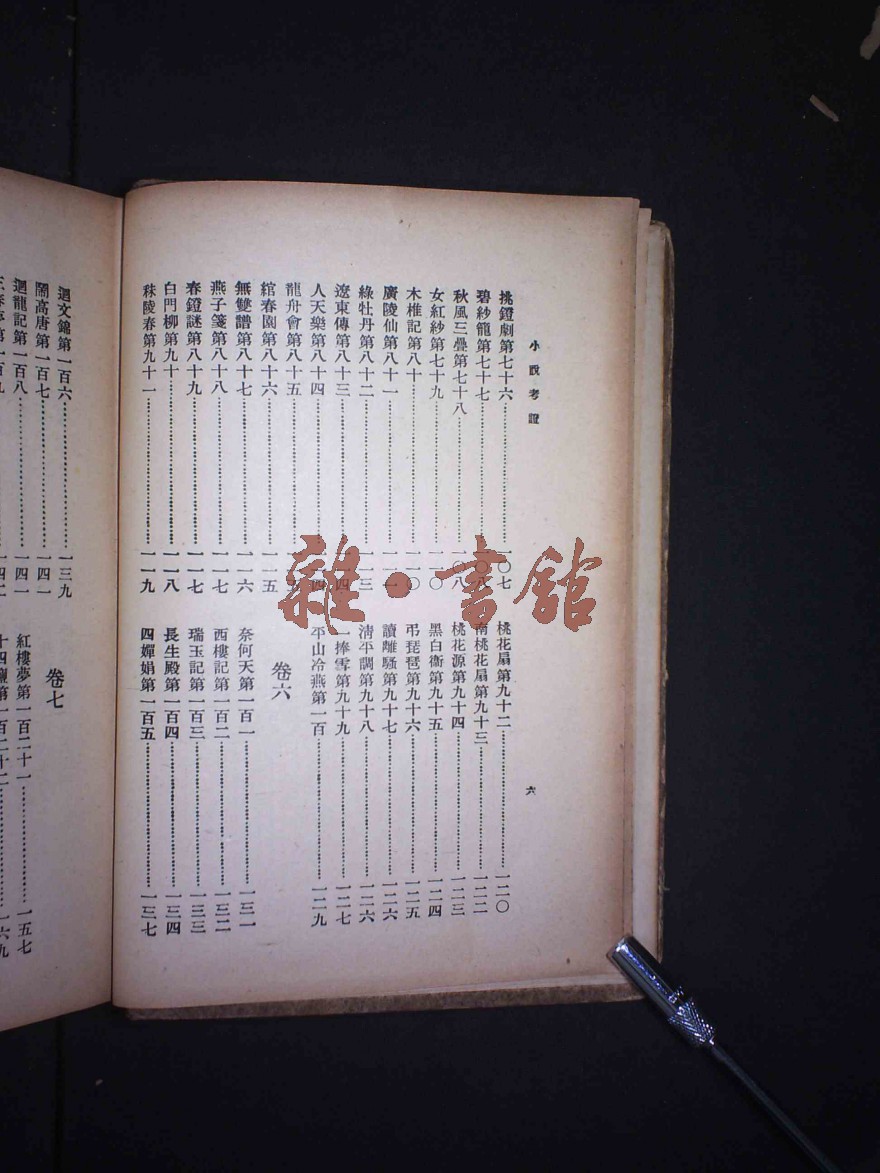 小說考證
六
挑鐙劇第七十六……一〇七
碧紗籠第七十七……一〇八
秋風三疊第七十八……一〇八
女紅紗第七十九……一一〇
木椎記第八十……一一〇
廣陵仙第八十一……一一一
綠牡丹第八十二……一一三
遼東傳第八十三……四
人天樂第八十四……一一四
龍舟會第八十五……
綰春園第八十六……一一五
無雙譜第八十七……一一六
燕子箋第八十八……一一七
春鐙謎第八十九……一一七
白門柳第九十……一一八
秣陵春第九十一……一一九
桃花扇第九十二……一二〇
南桃花扇第九十三……一二二
桃花源第九十四……一二三
黑白衞第九十五……一二四
弔琵琶第九十六……一二五
讀離騷第九十七……一二六
清平調第九十八……一二六
一捧雪第九十九……一二七
平山冷燕第一百……一二九
卷六
奈何天第一百一……一三一
西樓記第一百二……一三二
瑞玉記第一百三……一三三
長生殿第一百四……一三四
四嬋娟第一百五……一三七
迴文錦第一百六……一三九
鬧高唐第一百七……一四一
迴龍記第一百八……一四一
卷七
紅樓夢第一百二十一……一五七
第一百二十二……一六九
雜·書舘